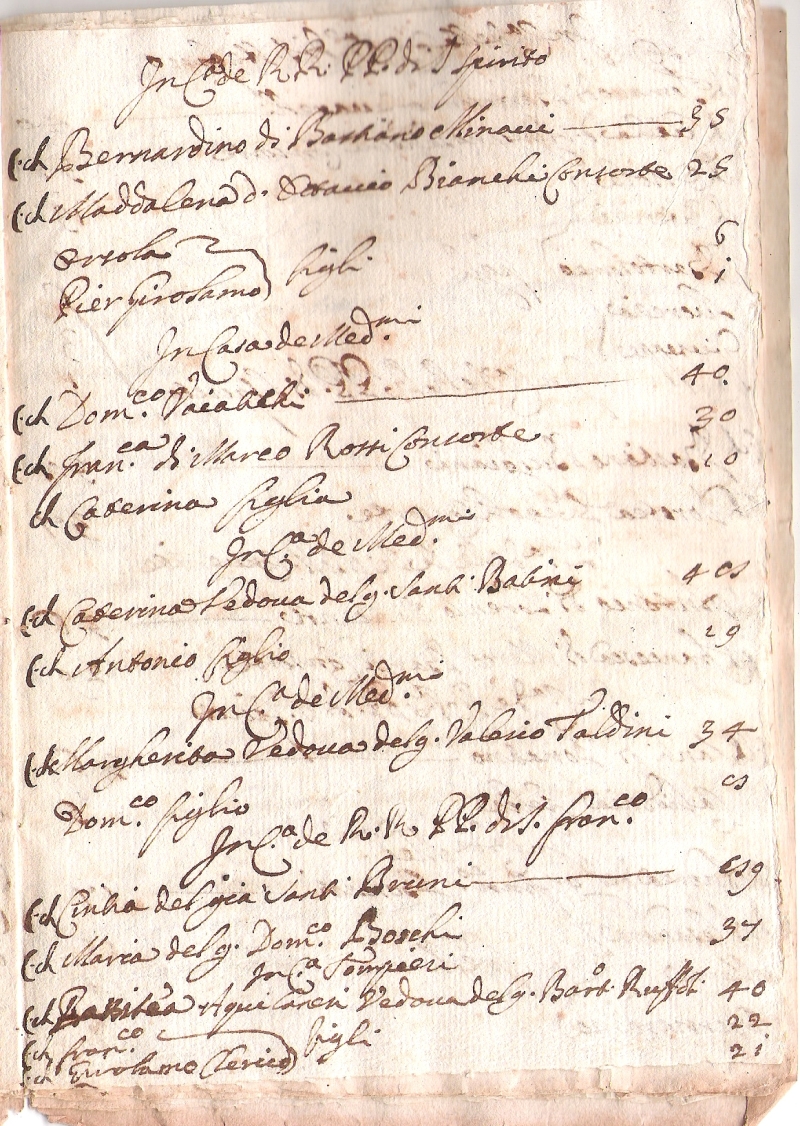 In C.a de RR. PP. di S. Spirito
C. ch Bernardino di Bastiano Minacci — 35
C. ch Maddalena d. Ottavio Bianchi Consorte 25
Orsola 6
Pier Girolamo figli 1
In Casa de Med.mi
C. ch Dom.co — 40.
C. ch Fran.ca di Marco Rossi Consorte 30
ch Caterina figlia 10
In C.a de Med.mi
C. ch Caterina Vedova del q. Santi Babini
C. ch Antonio figlio 19
In C.a de Med.mi
C. ch Margherita Vedova del q. Valerio Taldini 34
Dom.co figlio
In C.a de R. R. PP. di S. Fran.co
C. ch Cintia del già Santi Bruni —
C. ch Maria del q. Dom.co Boschi 37
In C.a Pompieri
C. ch Vedova del q. Bart.o 40
C. ch Fran.co 22
C. ch Girolamo Clerico figli 21